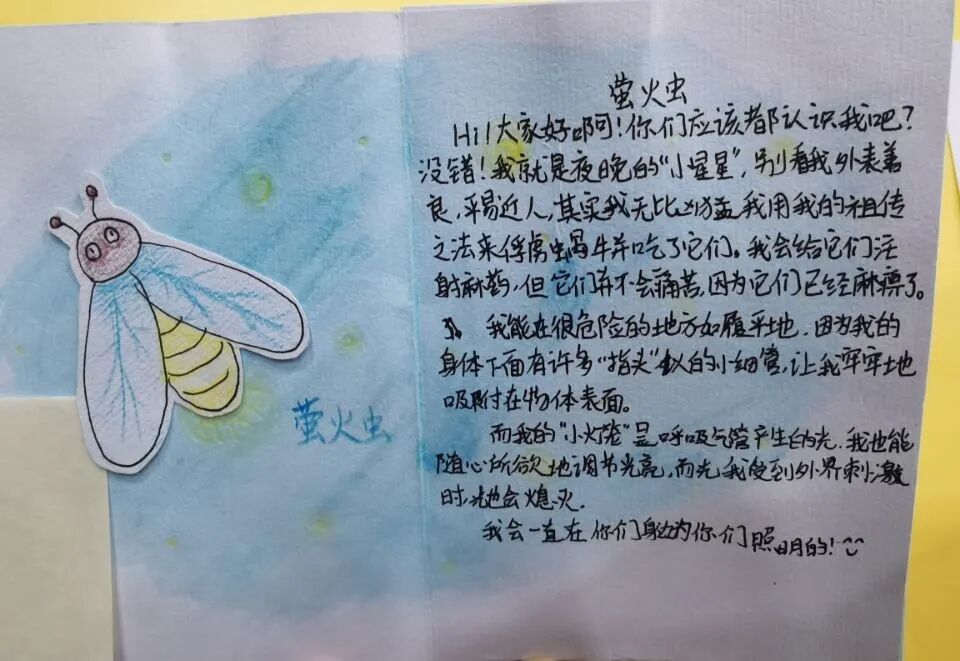 萤火虫
萤火虫
Hi!大家好啊!你们应该都认识我吧?
没错!我就是夜晚的“小星星”,别看我外表善
良,平易近人,其实我无比凶猛我用我的祖传
之法来俘虏蜗牛并吃了它们。我会给它们注
射麻药,但它们并不会痛苦,因为它们已经麻痹了。
我能在很危险的地方如履平地,因为我的
身体下面有许多“指头”似的小细管,让我牢牢地
吸附在物体表面。
而我的“小灯笼”是呼吸气管产生的光,我也能
随心所欲地调节光亮,而光,我受到外界刺激
时,光也会熄灭.
我会一直在你们身边为你们照明的!